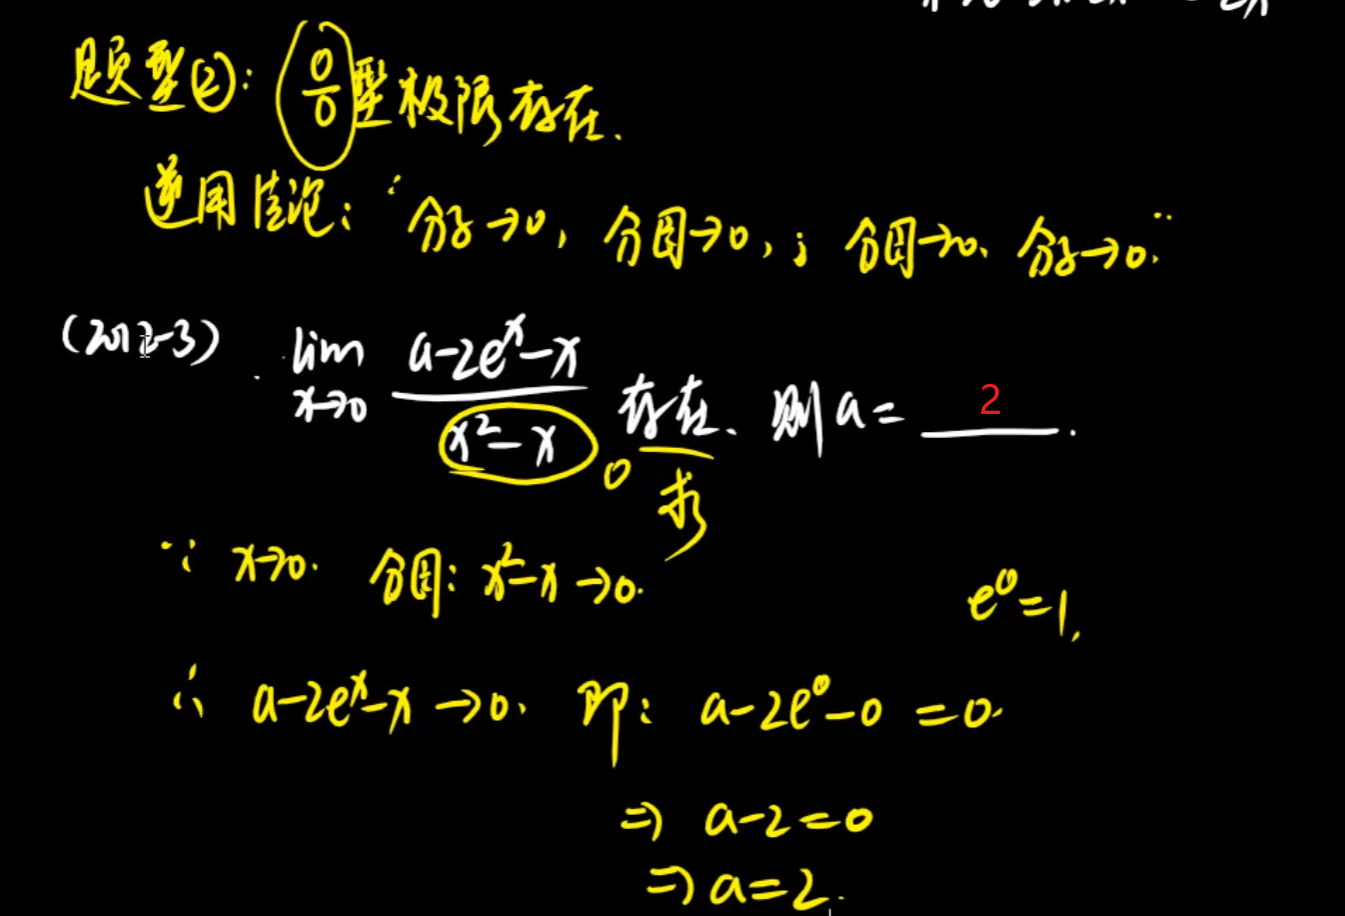 题型②: 0/0型极限存在.
逆用结论: "分子→0, 分母→0, ; 分母→0、分子→0."
(2012-3). lim x→0 (a-2eˣ-x)/(x²-x) 存在、则a= 2 .
0 求
∵ x→0. 分母: x²-x→0.
e⁰=1,
∴ a-2eˣ-x→0. 即: a-2e⁰-0=0.
⇒ a-2=0
⇒ a=2.